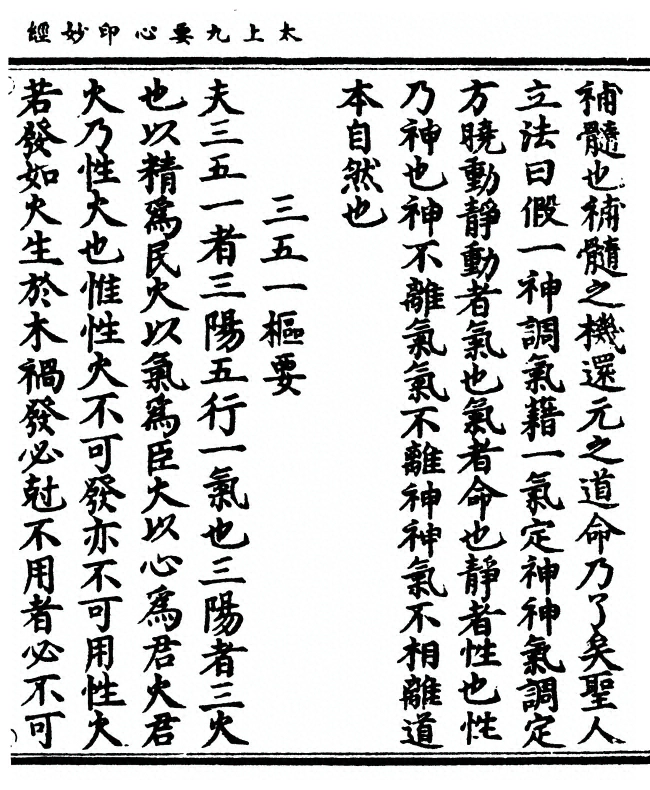 太上九要心印妙經
補髓也補髓之機還元之道命乃了矣聖人
立法曰假一神調氣藉一氣定神神氣調定
方曉動靜動者氣也氣者命也靜者性也性
乃神也神不離氣氣不離神神氣不相離道
本自然也
三五一樞要
夫三五一者三陽五行一氣也三陽者三火
也以精爲民火以氣爲臣火以心爲君火君
火乃性火也惟性火不可發亦不可用性火
若發如火生於木禍發必尅不用者必不可